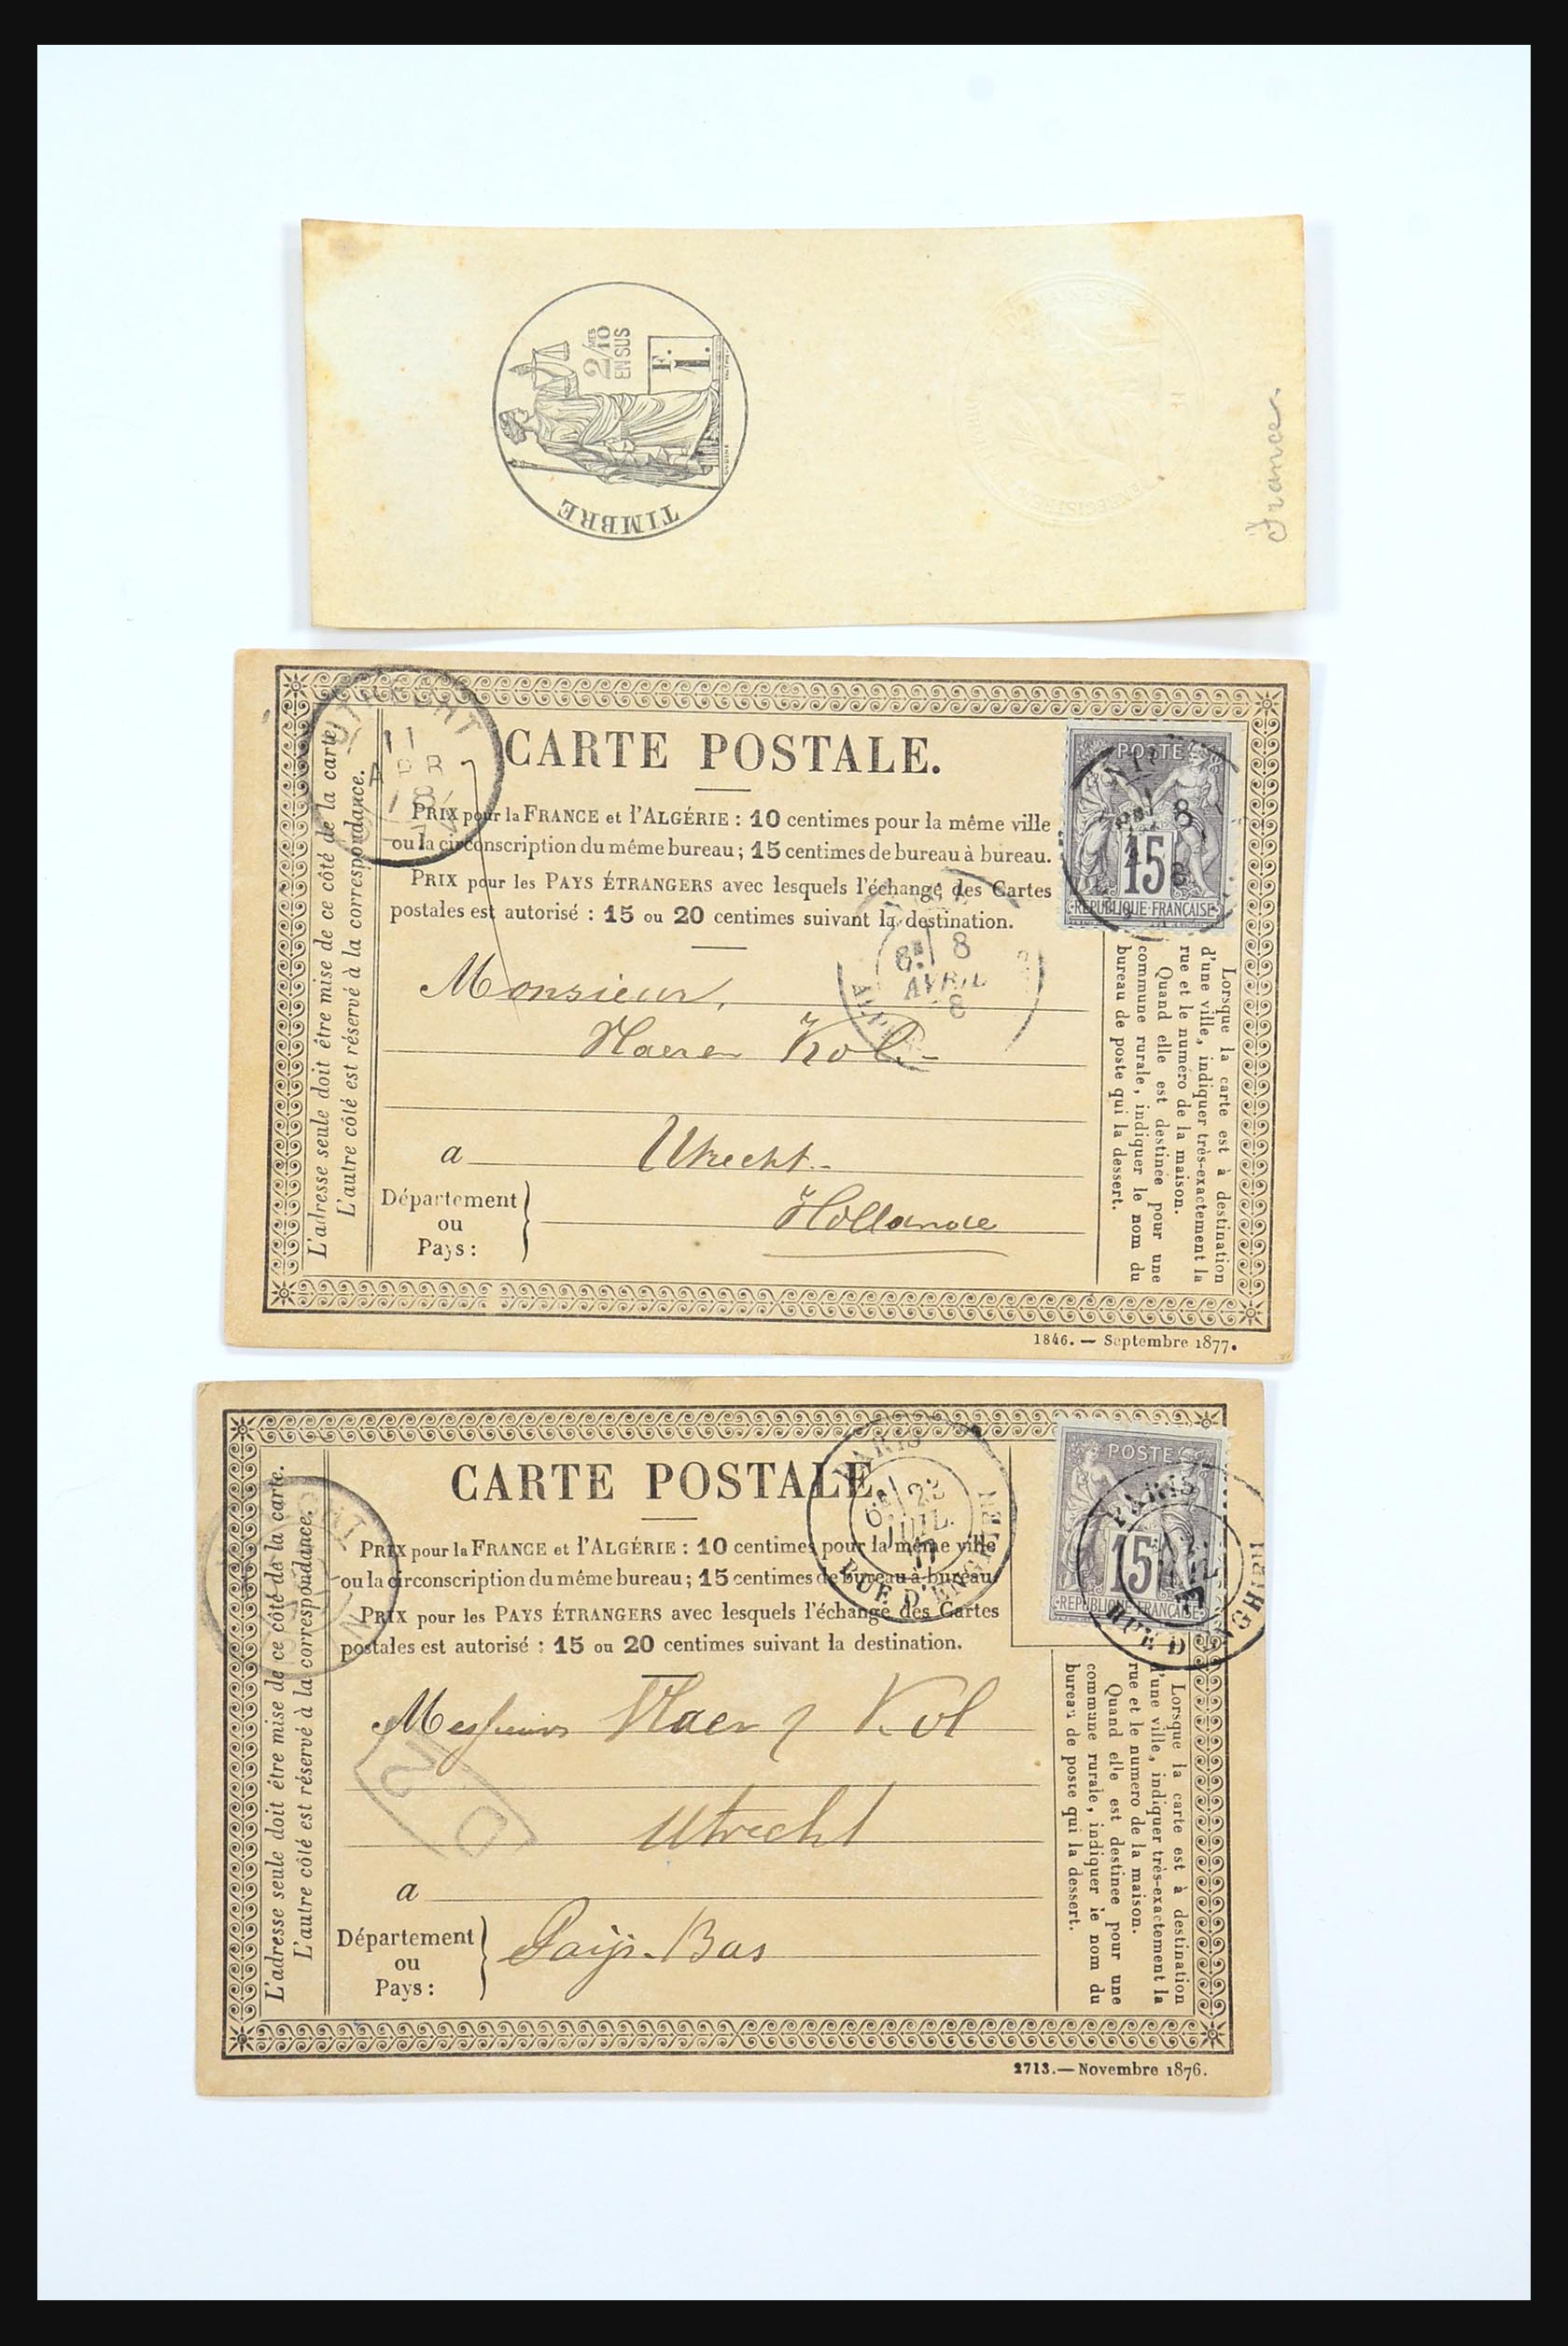 TIMBRE
2/10 MES
EN SUS
1. F.
OUDINÉ
France.
UTRECHT
11
APR
CARTE POSTALE.
PRIX pour la FRANCE et l'ALGÉRIE : 10 centimes pour la même ville
ou la circonscription du même bureau ; 15 centimes de bureau à bureau.
PRIX pour les PAYS ÉTRANGERS avec lesquels l'échange des Cartes
postales est autorisé : 15 ou 20 centimes suivant la destination.
POSTE
15
REPUBLIQUE FRANÇAISE
8
AVRIL
8
Monsieur,
Kol
a Utrecht
Département
ou
Pays :
Hollande
L'adresse seule doit être mise de ce côté de la carte.
L'autre côté est réservé à la correspondance.
Lorsque la carte est à destination
d'une ville, indiquer très-exactement la
rue et le numéro de la maison.
Quand elle est destinée pour une
commune rurale, indiquer le nom du
bureau de poste qui la dessert.
1846. — Septembre 1877.
CARTE POSTALE.
PRIX pour la FRANCE et l'ALGÉRIE : 10 centimes pour la même ville
ou la circonscription du même bureau ; 15 centimes de bureau à bureau.
PRIX pour les PAYS ÉTRANGERS avec lesquels l'échange des Cartes
postales est autorisé : 15 ou 20 centimes suivant la destination.
PARIS
JUIL.
77
RUE D'ENGHIEN
POSTE
15
REPUBLIQUE FRANÇAISE
PARIS
RUE D'ENGHIEN
Messieurs Vlaer & Kol
Utrecht
a
Département
ou
Pays :
Pays-Bas
L'adresse seule doit être mise de ce côté de la carte.
L'autre côté est réservé à la correspondance.
Lorsque la carte est à destination
d'une ville, indiquer très-exactement la
rue et le numero de la maison.
Quand elle est destinée pour une
commune rurale, indiquer le nom du
bureau de poste qui la dessert.
2713. — Novembre 1876.